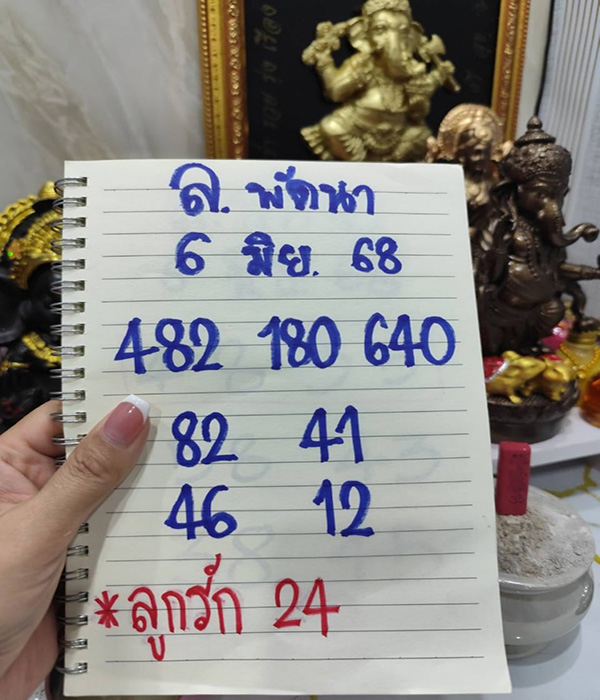 ล. พัฒนา
6 มิย. 68
482 180 640
82 41
46 12
*ลูกรัก 24